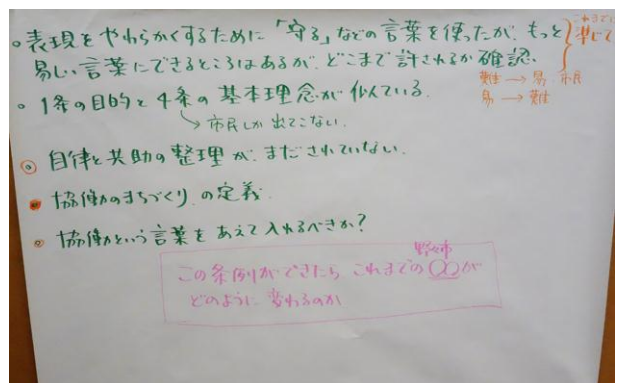 。表現をやわらかくするために「守る」などの言葉を使ったが、もっと
易しい言葉にできるところはあるが、どこまで許されるか確認、
これまでに
準じて
難 → 易 市民
易 → 難
。1条の目的と4条の基本理念が似ている。
→市民しか出てこない。
◎ 自律と共助の整理が、まだされていない、
● 協働のまちづくり、の定義
◎ 協働という言葉をあえて入れるべきか?
野々市
この条例ができたら これまでの〇〇が
どのように変わるのか